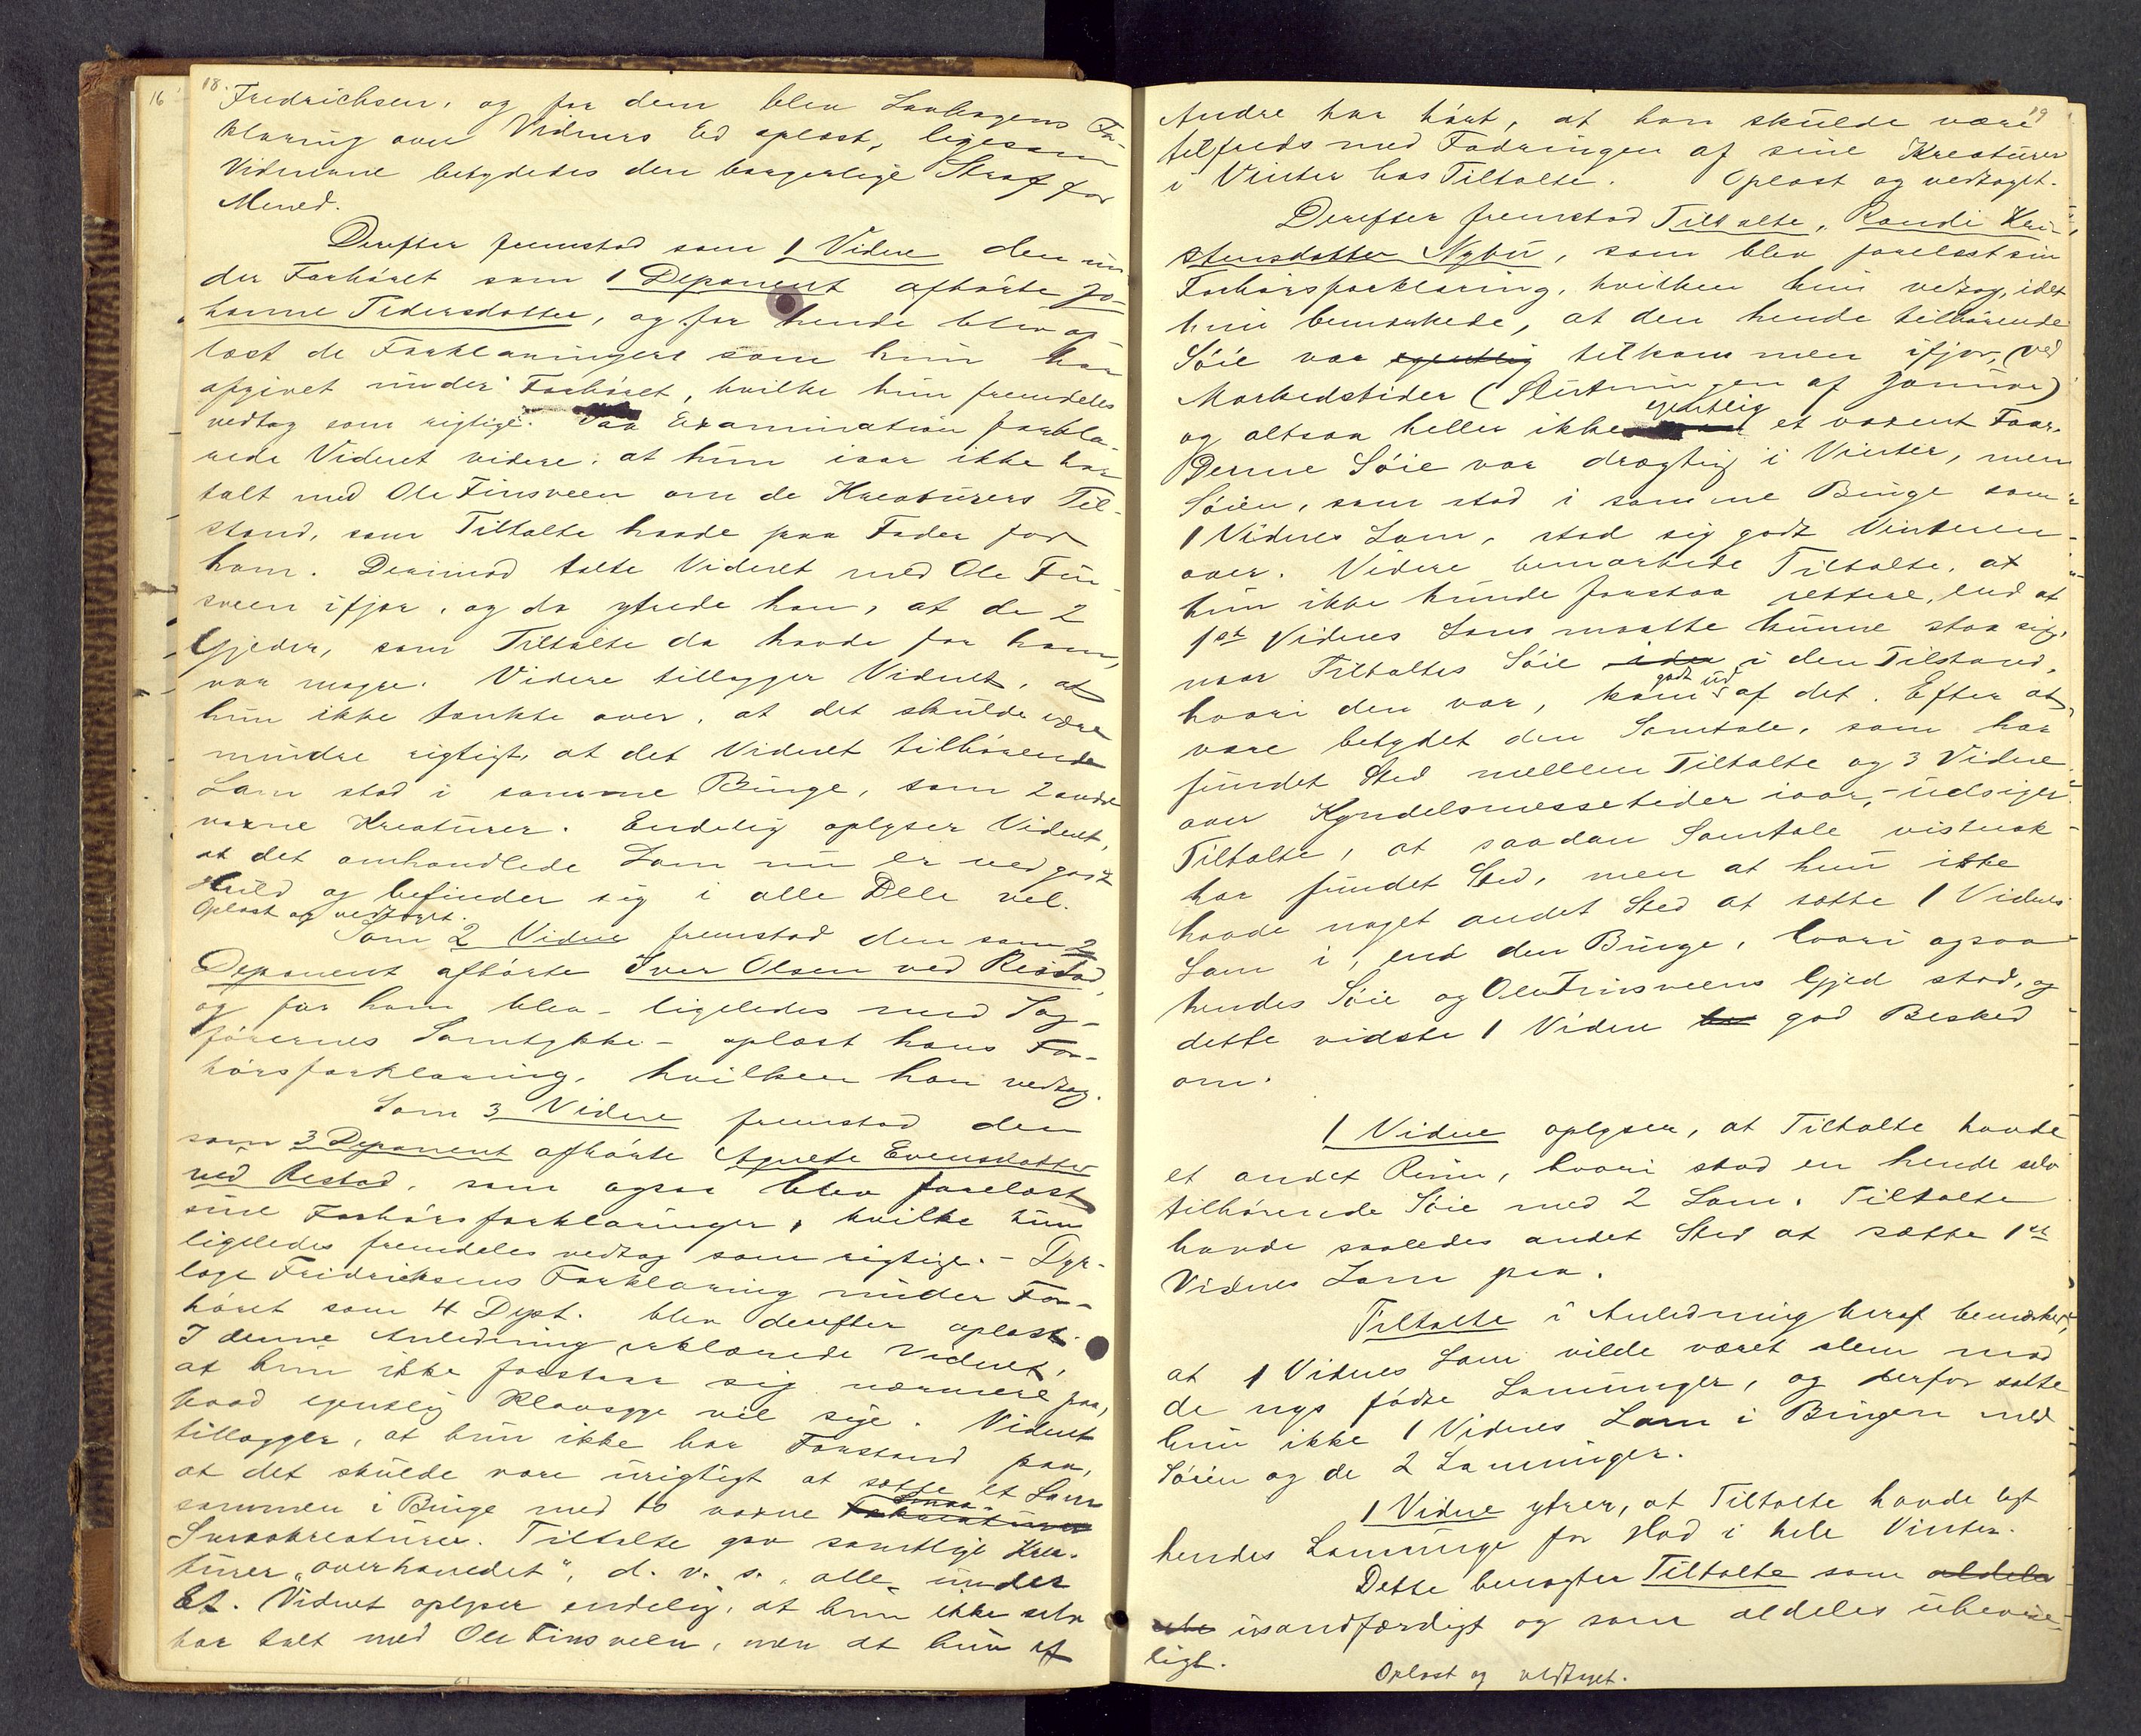 16
18.
Fredrichsen, og for dem blev Lovbogens For-
klaring over Vidners Ed oplæst, ligesom
Vidnerne betydedes den borgerlige Straf for
Mened.
Derefter fremstod som 1 Vidne den un-
der Forhöret som 1 Deponent afhörte Jo-
hanne Pedersdotter, og for hende blev op-
læst de Forklaringer som hun har
afgivet under Forhöret, hvilke hun fremdeles
vedtog som rigtige. Paa Examination forkla-
rede Vidnet videre: at hun iaar ikke har
talt med Ole Finsveen om de Kreaturers Til-
stand, som Tiltalte havde paa Foder for
ham. Derimod talte Vidnet med Ole Fin-
sveen ifjor, og da ytrede han, at de 2
Gjeder, som Tiltalte da havde for ham,
var magre. Videre tillægger Vidnet, at
hun ikke tænkte over, at det skulde være
mindre rigtigt, at det Vidnet tilhörende
Lam stod i samme Binge, som 2 andre
voxne Kreaturer. Endelig oplyser Vidnet,
at det omhandlede Lam nu er ved godt
Huld og befinder sig i alle Dele vel.
Oplæst og vedtaget.
Som 2 Vidne fremstod den som 2
Deponent afhörte Iver Olsen ved Restad,
og for ham blev - ligeledes med Sag-
förernes Samtykke - oplæst hans For-
hörsforklaring, hvilken han vedtog.
Som 3 Vidne fremstod den
som 3 Deponent afhörte Agnete Evensdotter
ved Restad, som ogsaa blev forelæst
sine Forhörsforklaringer, hvilke hun
ligeledes fremdeles vedtog som rigtige. - Dyr-
læge Fridrichsens Forklaring under For-
höret som 4 Dept. blev derefter oplæst.
I denne Anledning erklærede Vidnet,
at hun ikke forstaar sig nærmere paa,
hvad egentlig Klovsyge vil sige. Vidnet
tillægger, at hun ikke har Forstand paa,
at det skulde være urigtigt at sætte et Lam
sammen i Binge med to voxne
Smaakreaturer. Tiltalte gav samtlige Krea-
turer "overhovedet", d. v. s. alle under
Et. Vidnet oplyser endelig, at hun ikke selv
har talt med Ole Finsveen, men at hun af
19
Andre har hört, at han skulde være
tilfreds med Fodringen af sine Kreaturer
i Vinter hos Tiltalte. Oplæst og vedtaget.
Derefter fremstod Tiltalte, Randi Kri-
stensdotter Nybu, som blev forelæst sin
Forhörsforklaring, hvilken hun vedtog, idet
hun bemærkede, at den hende tilhörende
Söie var egentlig tilkommen ifjor, (ved
Markedstider (Slutningen af Januar)
og altsaa heller ikke egentlig et voxent Faar.
Denne Söie var drægtig i Vinter, men
Söien, som stod i samme Binge som
1 Vidnes Lam, stod sig godt Vinteren
over. Videre bemærkede Tiltalte, at
hun ikke kunde forstaa rettere, end at
1ste Vidnes Lam maatte kunne staa sig,
naar Tiltaltes Söie i den Tilstand,
hvori den var, kom godt ud af det. Efter at
være betydet den Samtale, som har
fundet Sted mellem Tiltalte og 3 Vidne
over Kyndelsmessetider iaar, - udsiger
Tiltalte, at saadan Samtale vistnok
har fundet Sted, men at hun ikke
havde noget andet Sted at sætte 1 Vidnes
Lam i, end den Binge, hvori ogsaa
hendes Söie og Ole Finsveens Gjed stod, og
dette vidste 1 Vidne god Besked
om.
1 Vidne oplyser, at Tiltalte havde
et andet Rum, hvori stod en hende selv
tilhörende Söie med 2 Lam. Tiltalte
havde saaledes andet Sted at sætte 1ste
Vidnes Lam paa.
Tiltalte i Anledning heraf bemærker,
at 1 Vidnes Lam vilde været slem mod
de nys födte Lamunger, og derfor satte
hun ikke 1 Vidnes Lam i Bingen med
Söien og de 2 Lamunger.
1 Vidne ytrer, at Tiltalte havde lagt
hendes Lamunge for Had i hele Vinter.
Dette benægter Tiltalte som aldeles
usandfærdigt og som aldeles ubevise-
ligt.
Oplæst og vedtaget.